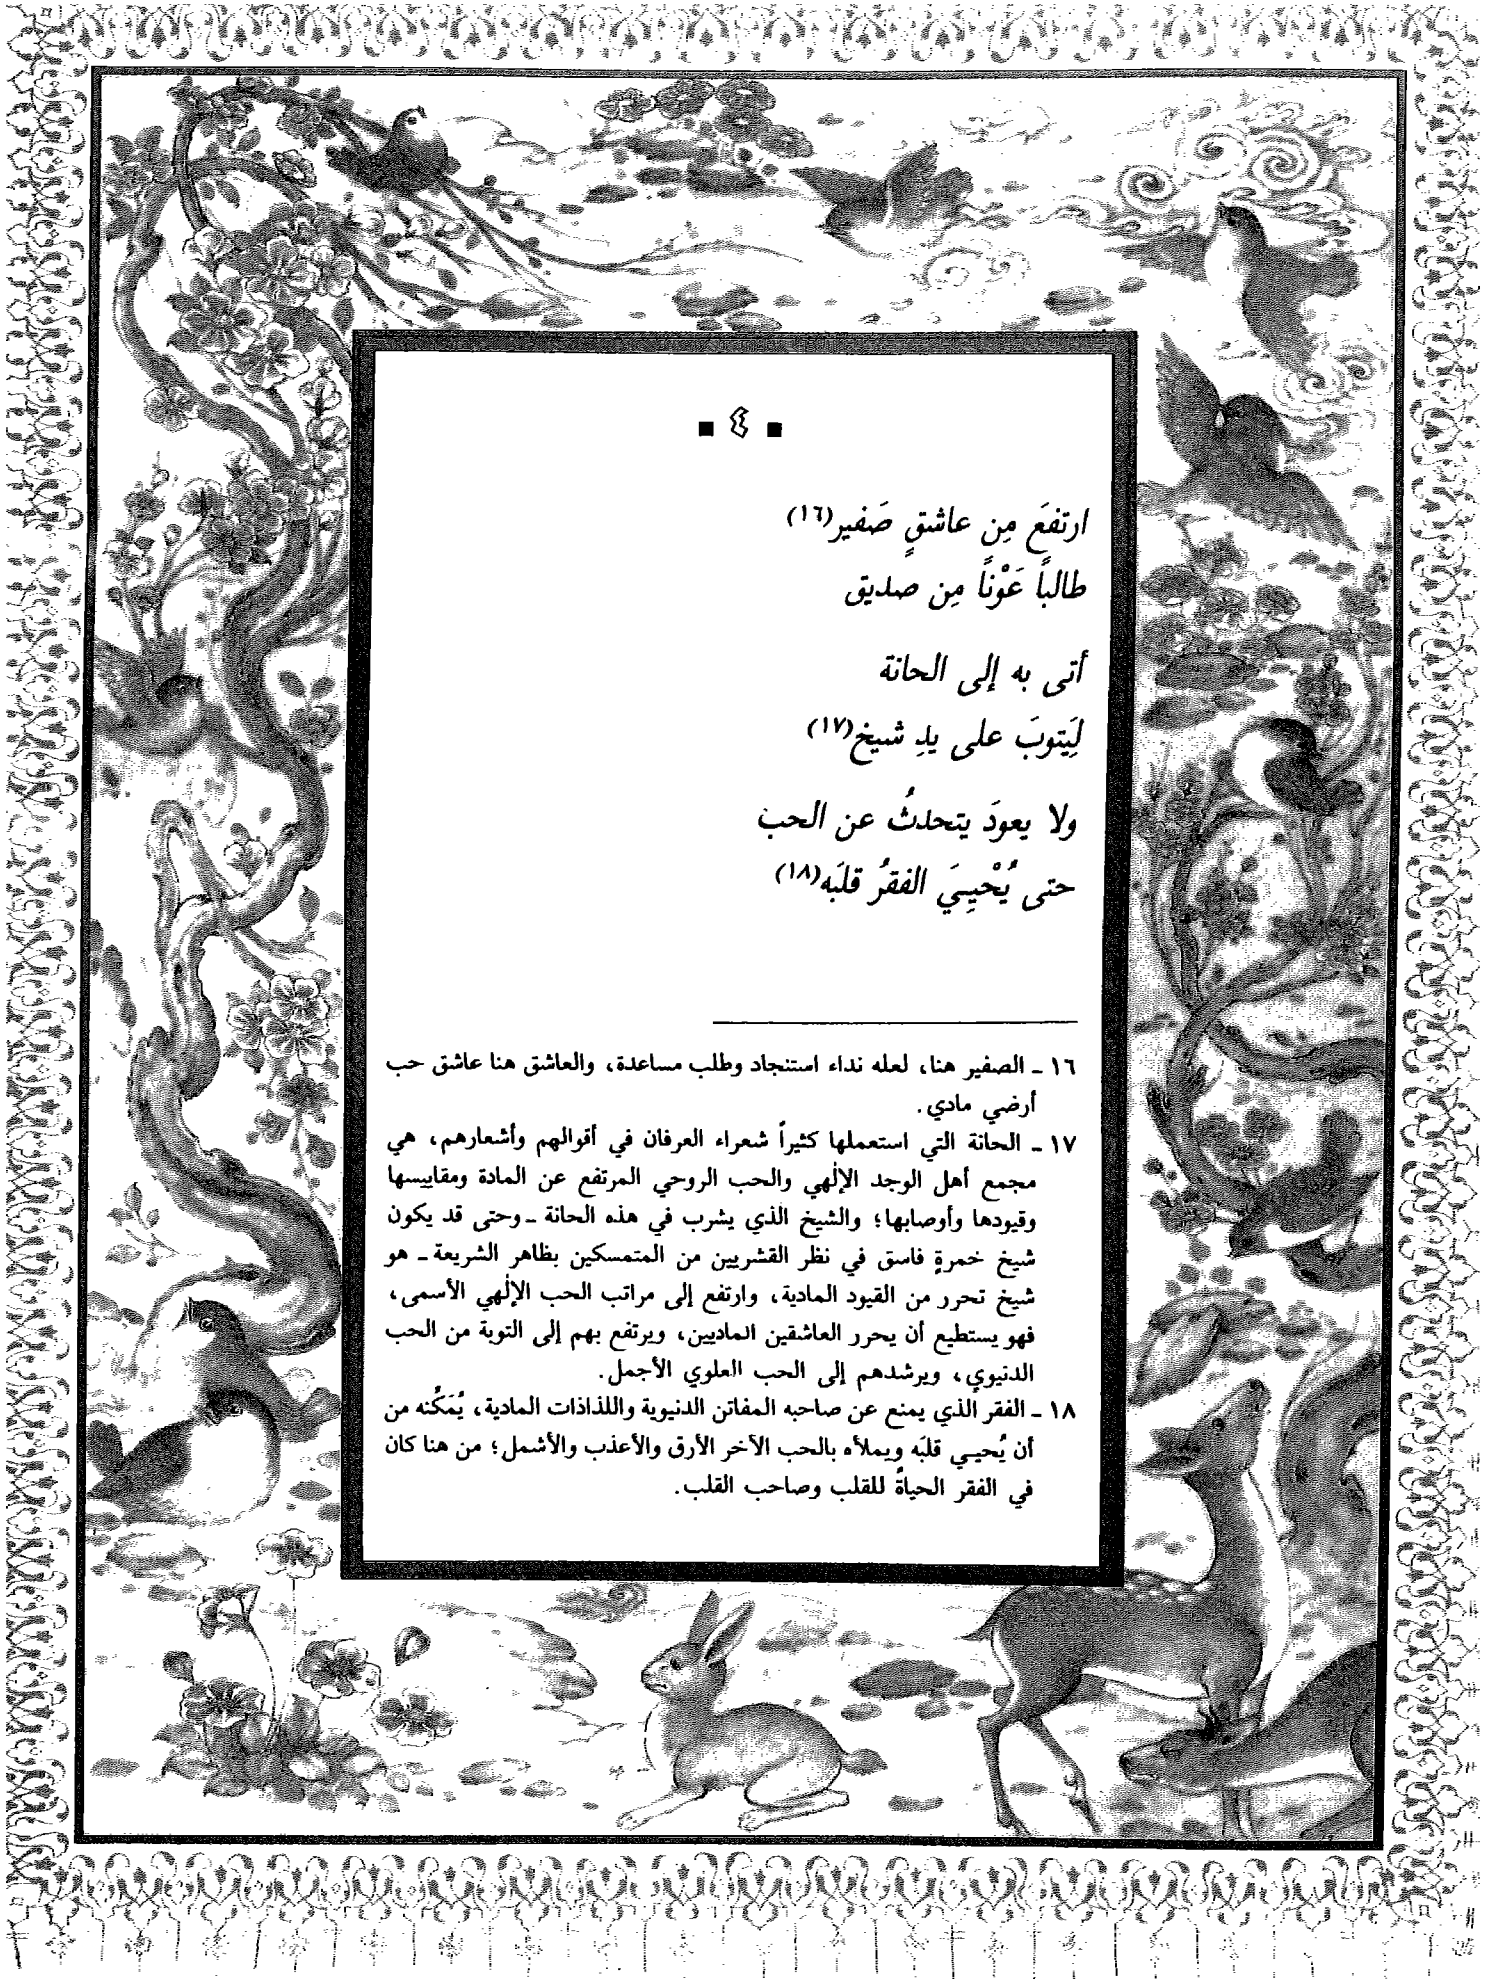 ■ ٤ ■
ارتفعَ مِن عاشقٍ صَفير(١٦)
طالباً عَوْناً مِن صديق
أتى به إلى الحانة
لِيَتوبَ على يدِ شيخ(١٧)
ولا يعودَ يتحدثُ عن الحب
حتى يُحْيِيَ الفقرُ قلبَه(١٨)
١٦ ـ الصفير هنا، لعله نداء استنجاد وطلب مساعدة، والعاشق هنا عاشق حب
أرضي مادي.
١٧ ـ الحانة التي استعملها كثيراً شعراء العرفان في أقوالهم وأشعارهم، هي
مجمع أهل الوجد الإلٰهي والحب الروحي المرتفع عن المادة ومقاييسها
وقيودها وأوصابها؛ والشيخ الذي يشرب في هذه الحانة ـ وحتى قد يكون
شيخ خمرةٍ فاسق في نظر القشريين من المتمسكين بظاهر الشريعة ـ هو
شيخ تحرر من القيود المادية، وارتفع إلى مراتب الحب الإلٰهي الأسمى،
فهو يستطيع أن يحرر العاشقين الماديين، ويرتفع بهم إلى التوبة من الحب
الدنيوي، ويرشدهم إلى الحب العلوي الأجمل.
١٨ ـ الفقر الذي يمنع عن صاحبه المفاتن الدنيوية واللذاذات المادية، يُمَكِّنه من
أن يُحيـي قلبَه ويملأه بالحب الآخر الأرق والأعذب والأشمل؛ من هنا كان
في الفقر الحياةُ للقلب وصاحب القلب.